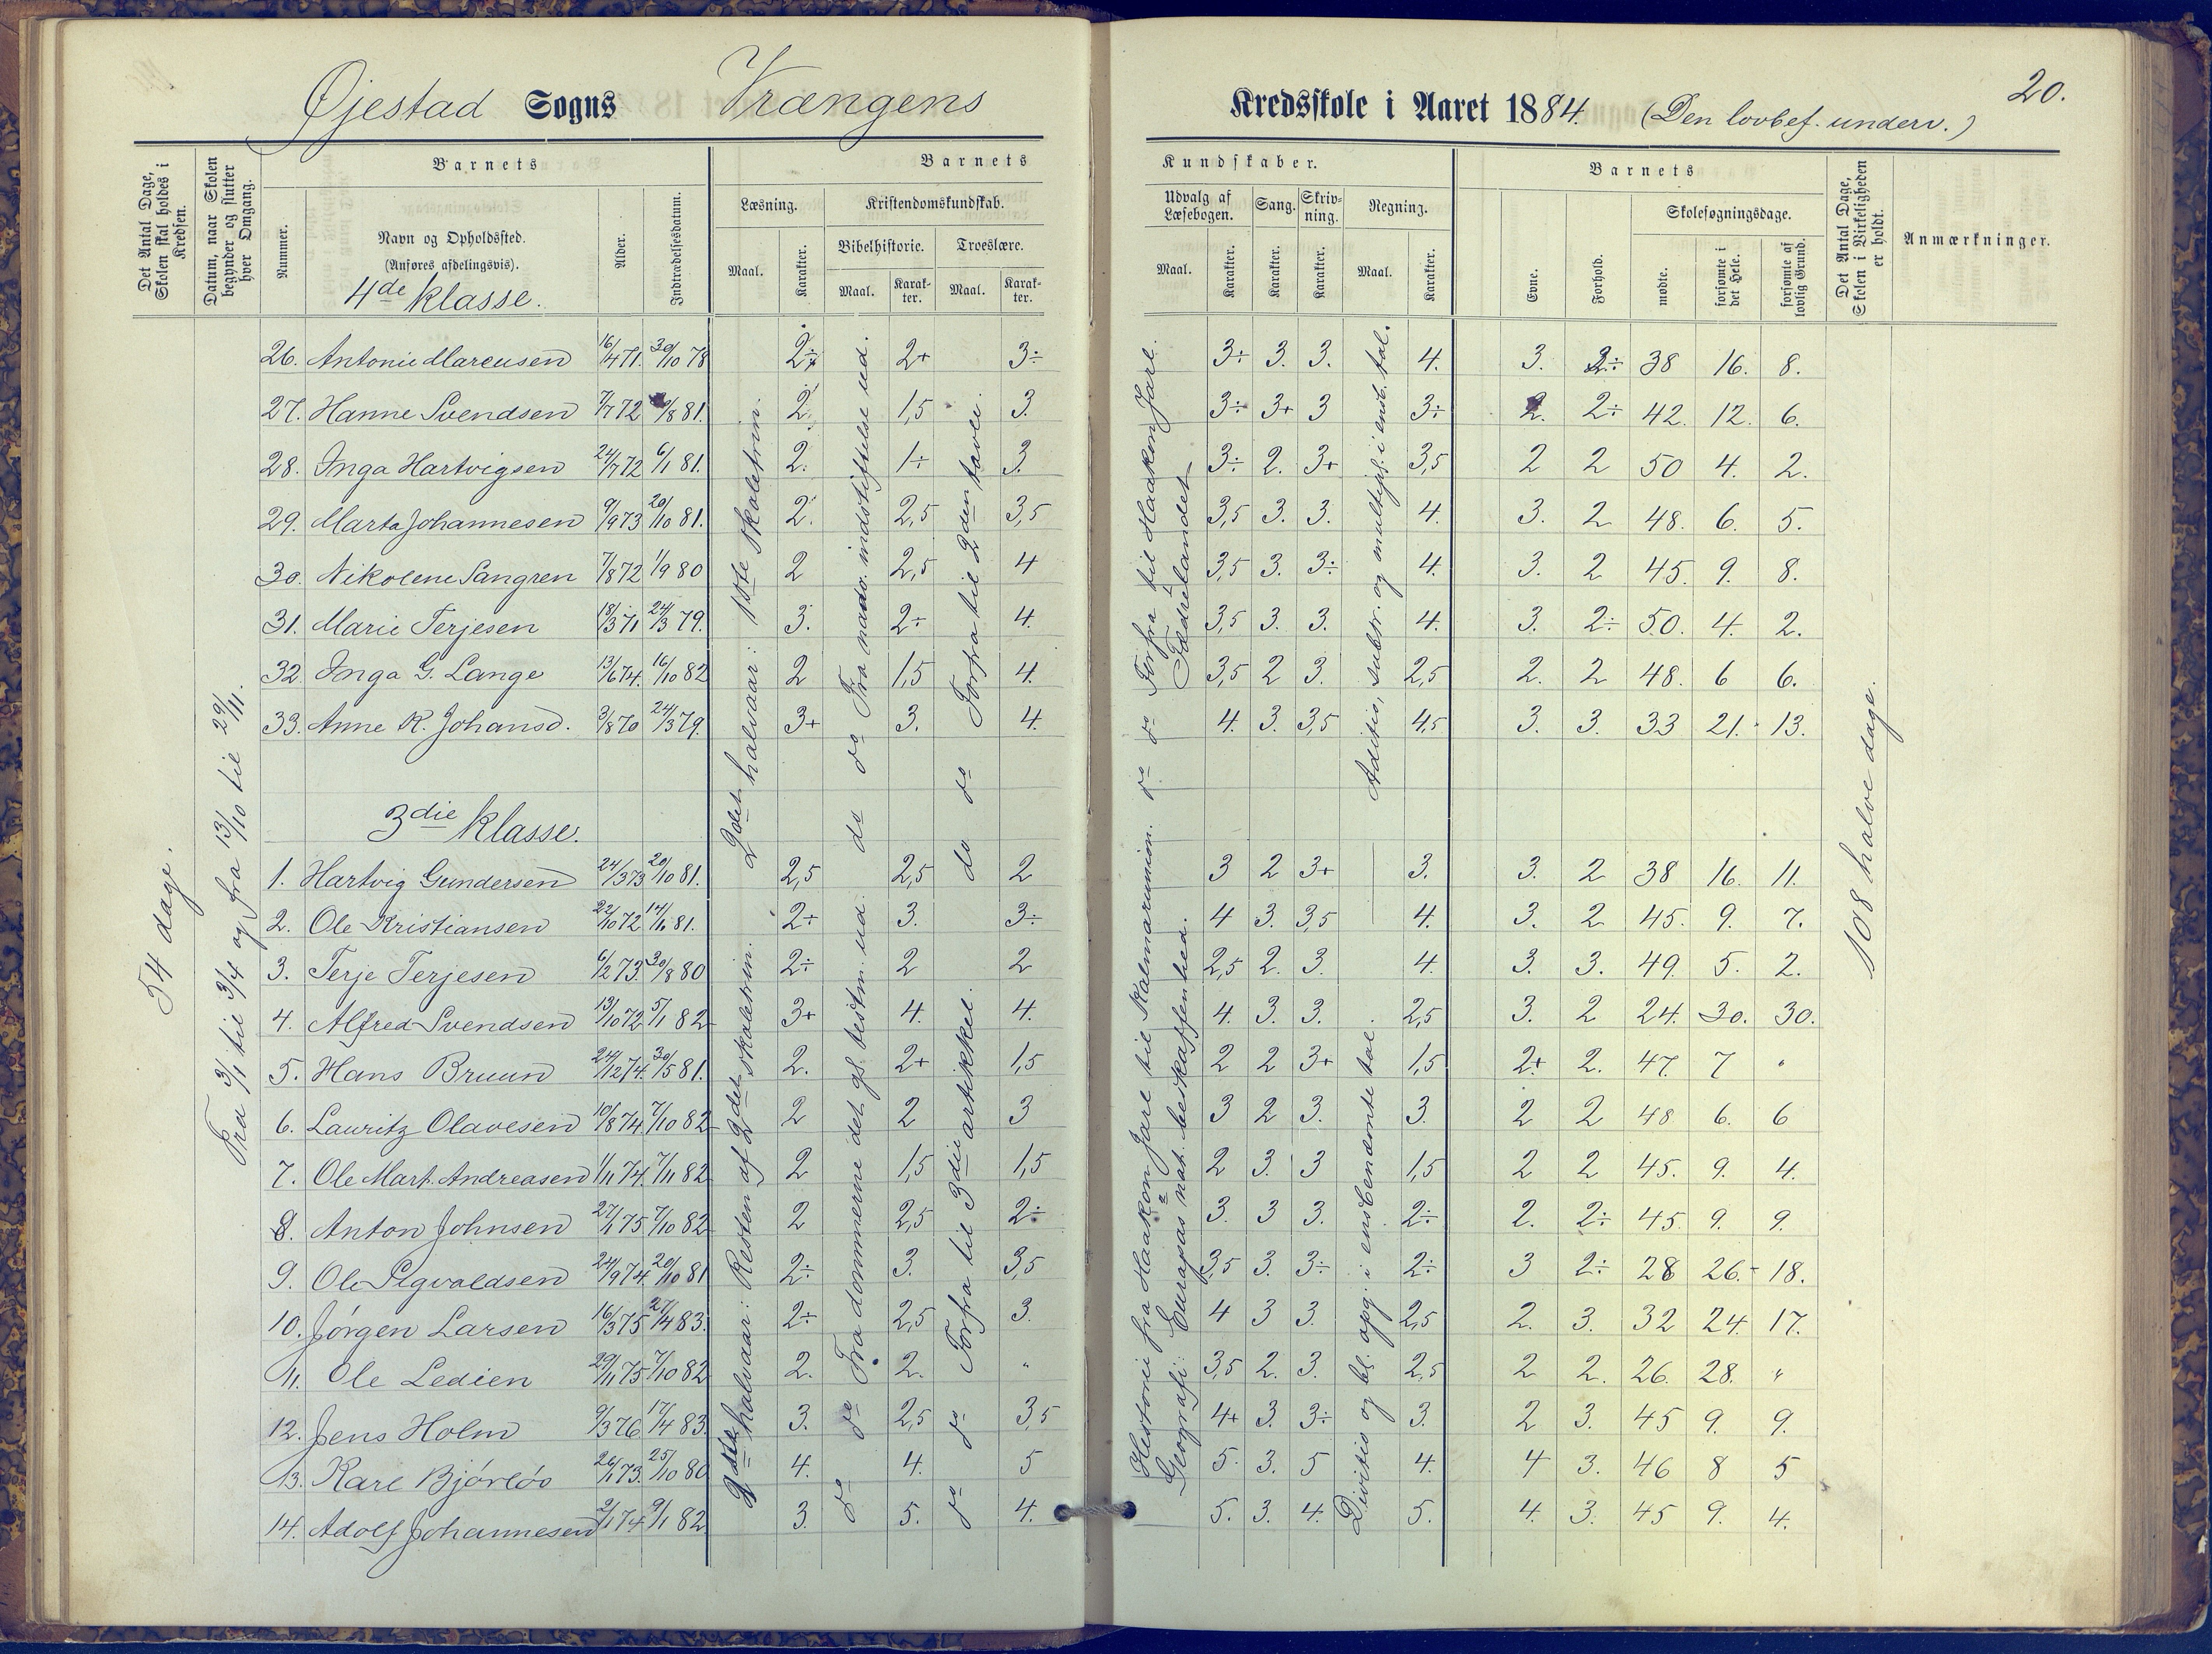 20.
Øjestad Sogns Vrængens Kredsskole i Aaret 1884. (Den lovbef. underv.)
Det Antal Dage, Skolen skal holdes i Kredsen.
Datum, naar Skolen begynder og slutter hver Omgang.
Barnets
Nummer.
Navn og Opholdssted.
(Anføres afdelingsvis).
Alder.
Indtrædelsesdatum.
Barnets Kundskaber.
Læsning.
Maal. Karakter.
Kristendomskundskab.
Bibelhistorie. Troeslære.
Maal. Karakter. Maal. Karakter.
Udvalg af Læsebogen.
Maal. Karakter.
Sang. Karakter.
Skrivning. Karakter.
Regning.
Maal. Karakter.
Barnets
Evne. Forhold.
Skolesøgningsdage.
mødte. forsømte i det Hele. forsømte af lovlig Grund.
Det Antal Dage, Skolen i Virkeligheden er holdt.
Anmærkninger.
4de klasse.
26. Antonie Marcusen 16/4 71. 30/10 78 2÷ 2+ 3÷ 3÷ 3. 3. 4. 3. 2÷ 38 16. 8.
27. Hanne Svendsen 7/7 72 /8 81. 2. 1,5 3. 3÷ 3+ 3 3÷ 2. 2÷ 42. 12. 6.
28. Inga Hartvigsen 24/7 72 6/1 81. 2. 1÷ 3. 3÷ 2. 3+ 3,5 2 2 50 4. 2.
29. Marta Johannesen 9/9 73 20/10 81. 2. 2,5 3,5 3,5 3. 3. 4. 3. 2 48. 6. 5.
30. Nikolene Sangren 7/8 72 1/9 80 2 2,5 4 3,5 3. 3÷ 4. 3. 2 45. 9. 8.
31. Marie Terjesen 18/3 71 24/3 79. 3. 2÷ 4. 3,5 3. 3. 4. 3. 2÷ 50. 4. 2.
32. Inga G. Lange 13/6 74. 16/10 82 2 1,5 4. 3,5 2 3. 2,5 2. 2 48. 6 6.
33. Anne K. Johansd. 3/8 70 24/3 79. 3+ 3. 4. 4. 3. 3,5 4,5 3. 3. 33 21. 13.
3die klasse.
1. Hartvig Gundersen 24/3 73 20/10 81. 2,5 2,5 2 3 2 3+ 3. 3. 2 38 16. 11.
2. Ole Kristiansen 22/10 72 14/11 81. 2÷ 3. 3÷ 4 3. 3,5 4. 3. 2 45. 9. 7.
3. Terje Terjesen 6/2 73. 30/8 80 2÷ 2 2 2,5 2. 3. 4. 3. 3. 49. 5. 2.
4. Alfred Svendsen 13/10 72 5/1 82 3+ 4. 4. 4. 3. 3. 2,5 3. 2 24. 30. 30.
5. Hans Bruun 24/12 74. 30/5 81. 2. 2+ 1,5 2 2 3+ 1,5 2+ 2. 47. 7 "
6. Lauritz Olavesen 10/8 74 7/10 82 2 2 3 3 2 3. 3. 2 2 48 6. 6
7. Ole Mart. Andreasen 1/11 74. 7/11 82 2 1,5 1,5 2 3. 3 1,5 2 2 45. 9. 4.
8. Anton Johnsen 27/1 75 7/10 82 2 2,5 2÷ 3. 3 3. 2÷ 2. 2÷ 45. 9. 9.
9. Ole Sigvaldsen 24/9 74. 20/10 81 2÷ 3. 3,5 3,5 3. 3÷ 2÷ 3 2÷ 28 26. 18.
10. Jørgen Larsen 16/3 75 27/4 83. 2÷ 2,5 3. 4 3 3. 2,5 2. 3. 32 24. 17.
11. Ole Ledien 29/11 75 7/10 82 2. 2. " 3,5 2. 3. 2,5 2 2. 26. 28. "
12. Jens Holm 9/3 76 17/4 83. 3. 2,5 3,5 4+ 3. 3÷ 3. 2 3. 45 9. 9.
13. Karl Bjórløs 26/1 73. 25/10 80 4. 4. 5 5. 3. 5 4. 4 3. 46 8 5
14. Adolf Johannesen 2/1 74 9/1 82 3. 5. 4. 5. 3. 4. 5. 4. 3. 45 9. 4.
54 dage.
Fra 3/1 til 3/4 og fra 13/10 til 29/11.
1ste halvaar: Resten af 2det skoletrin. 2det halvaar: 1ste skoletrin.
do do Fra dommerne det gl. testm. ud. do do Fra nadv. indstiftelse ud.
do do Forfra til 3die artikkel. do do Forfra til 2den tavle.
Historie fra Haakon Jarl til Kalmarunion. do do Forfra til Haakon Jarl.
Geografi: Europas nat. beskaffenhed. Fædrelandet
Divisio og bl. opg. i ensbenævnte tal. Aditio, subtr. og multipl. i ensb. tal.
108 halve dage.